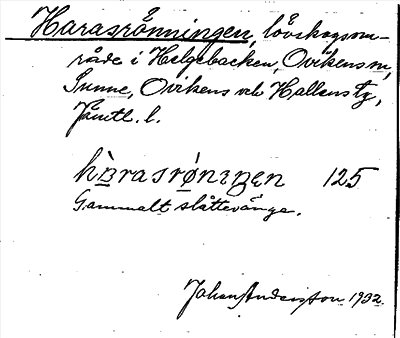 Harasrönningen, lövskogsom-
råde i Helgebacken, Ovikens sn,
Sunne, Ovikens och Hallens tg,
Jämtl. l.
hàrasrøningen 125
Gammalt slåttevänge.
Johan Andersson 1932.